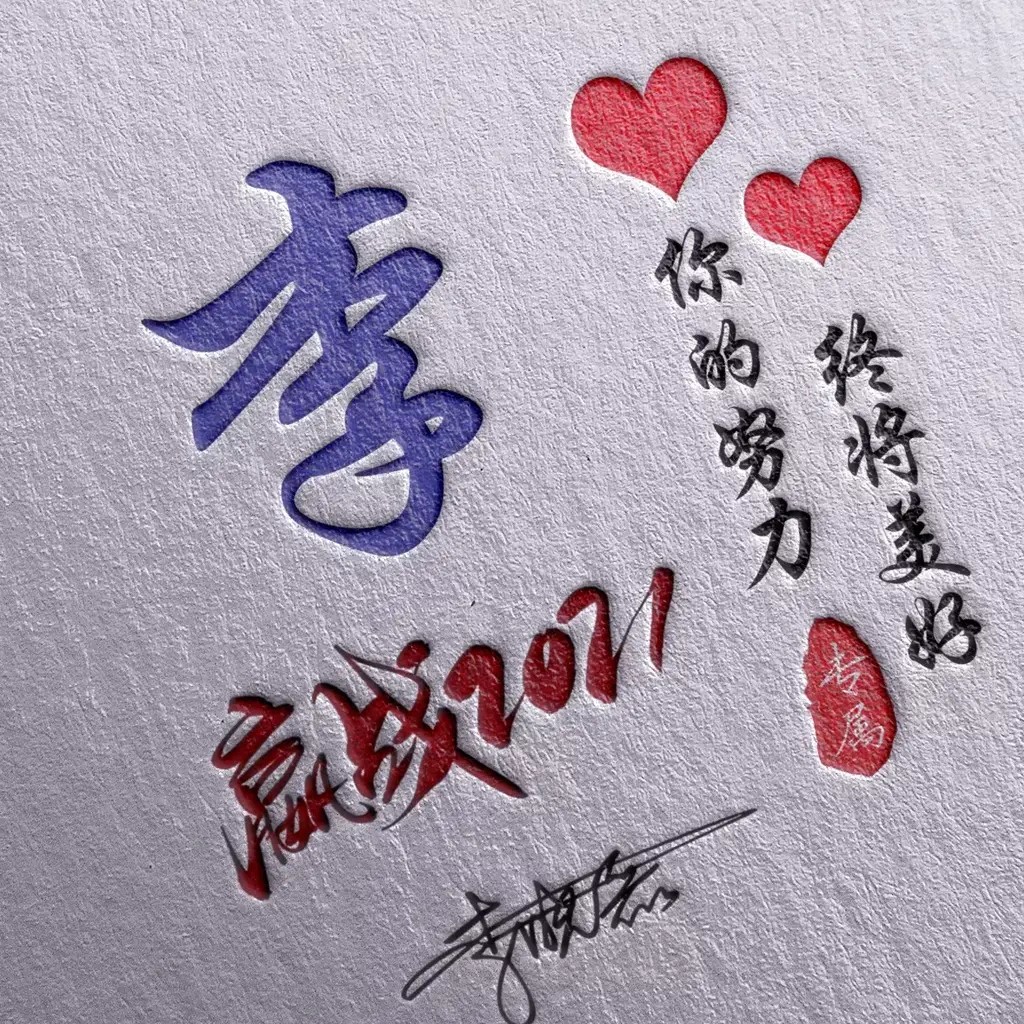 李
你的努力
终将美好
专属
赢战2021